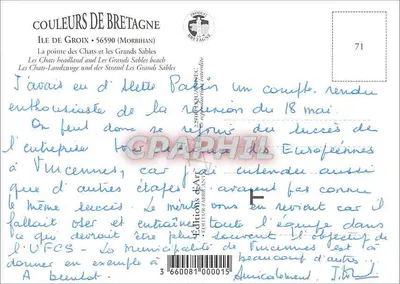 COULEURS DE BRETAGNE
ILE DE GROIX • 56590 (MORBIHAN)
La pointe des Chats et les Grands Sables
Les Chats headland and Les Grands Sables beach
Les Chats-Landzunge und der Strand Les Grands Sables
PRODUIT EN BRETAGNE
71
J'avais eu d' un compte rendu
enthousiaste de la réunion du 18 mai.
On peut donc se réjouir du succès de
l'entreprise des Européennes
à Vincennes, car j'ai entendu aussi
que d'autres étapes avaient pas connu
le même succès. Le mérite vous en revient car il
fallait oser et entraîner toute l'équipe dans
ce qui devrait être plus souvent l'objectif de
l'UFCS. La Municipalité de Vincennes est à
donner en exemple à beaucoup d'autres..
A bientôt. Amicalement
CPARPHIL
éditions d'Art
3 660081 000015